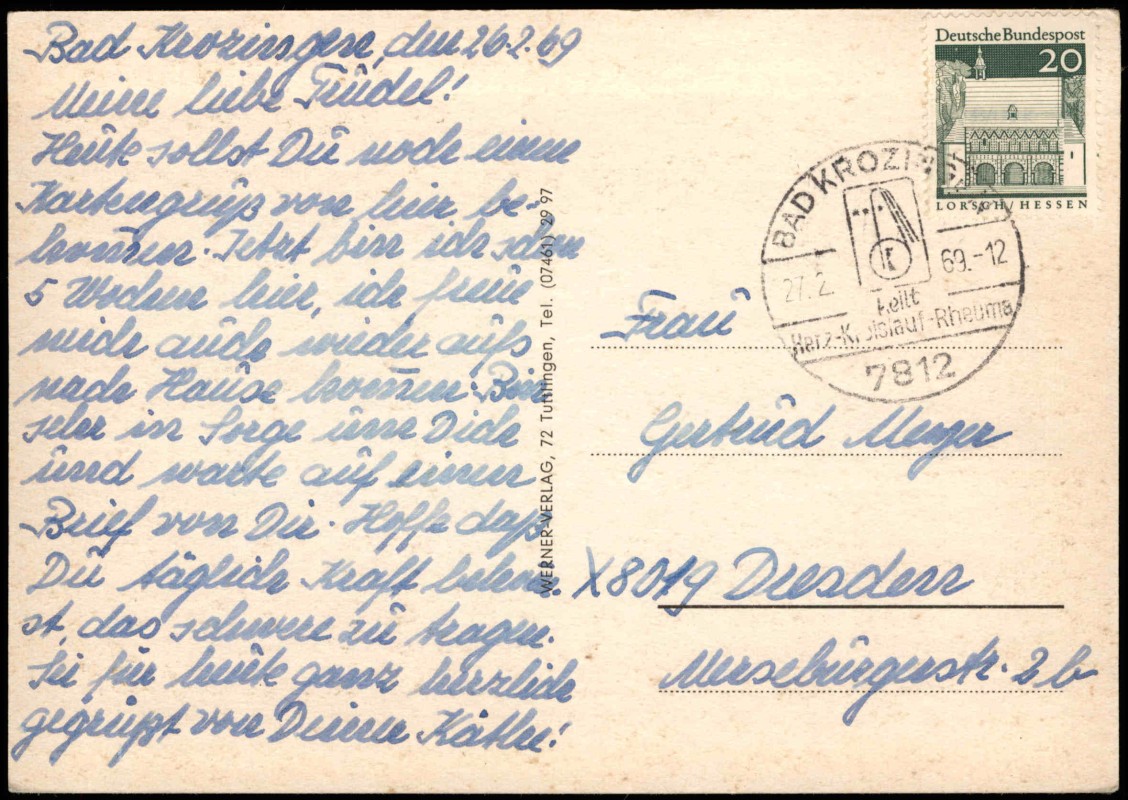 Bad Krozingen, den 26.2.69
Meine liebe Trudel!
Heute sollst Du noch einen
Kartengruß von hier be-
kommen. Jetzt bin ich schon
5 Wochen hier, ich freue
mich auch wieder aufs
nach Hause kommen. Bin
sehr in Sorge um Dich
und warte auf einen
Brief von Dir. Hoffe daß
Du täglich Kraft bekomm
st, das schwere zu tragen.
Sei für heute ganz herzlich
gegrüßt von Deiner Käthe!
WERNER-VERLAG, 72 Tuttlingen, Tel. (07461) 29 97
Deutsche Bundespost
20
LORSCH/HESSEN
BAD KROZINGEN
27.2.69.-12
heilt
Herz-Kreislauf-Rheuma
7812
Frau
Gertrud Meyer
X8019 Dresden
Merseburgerstr. 2b